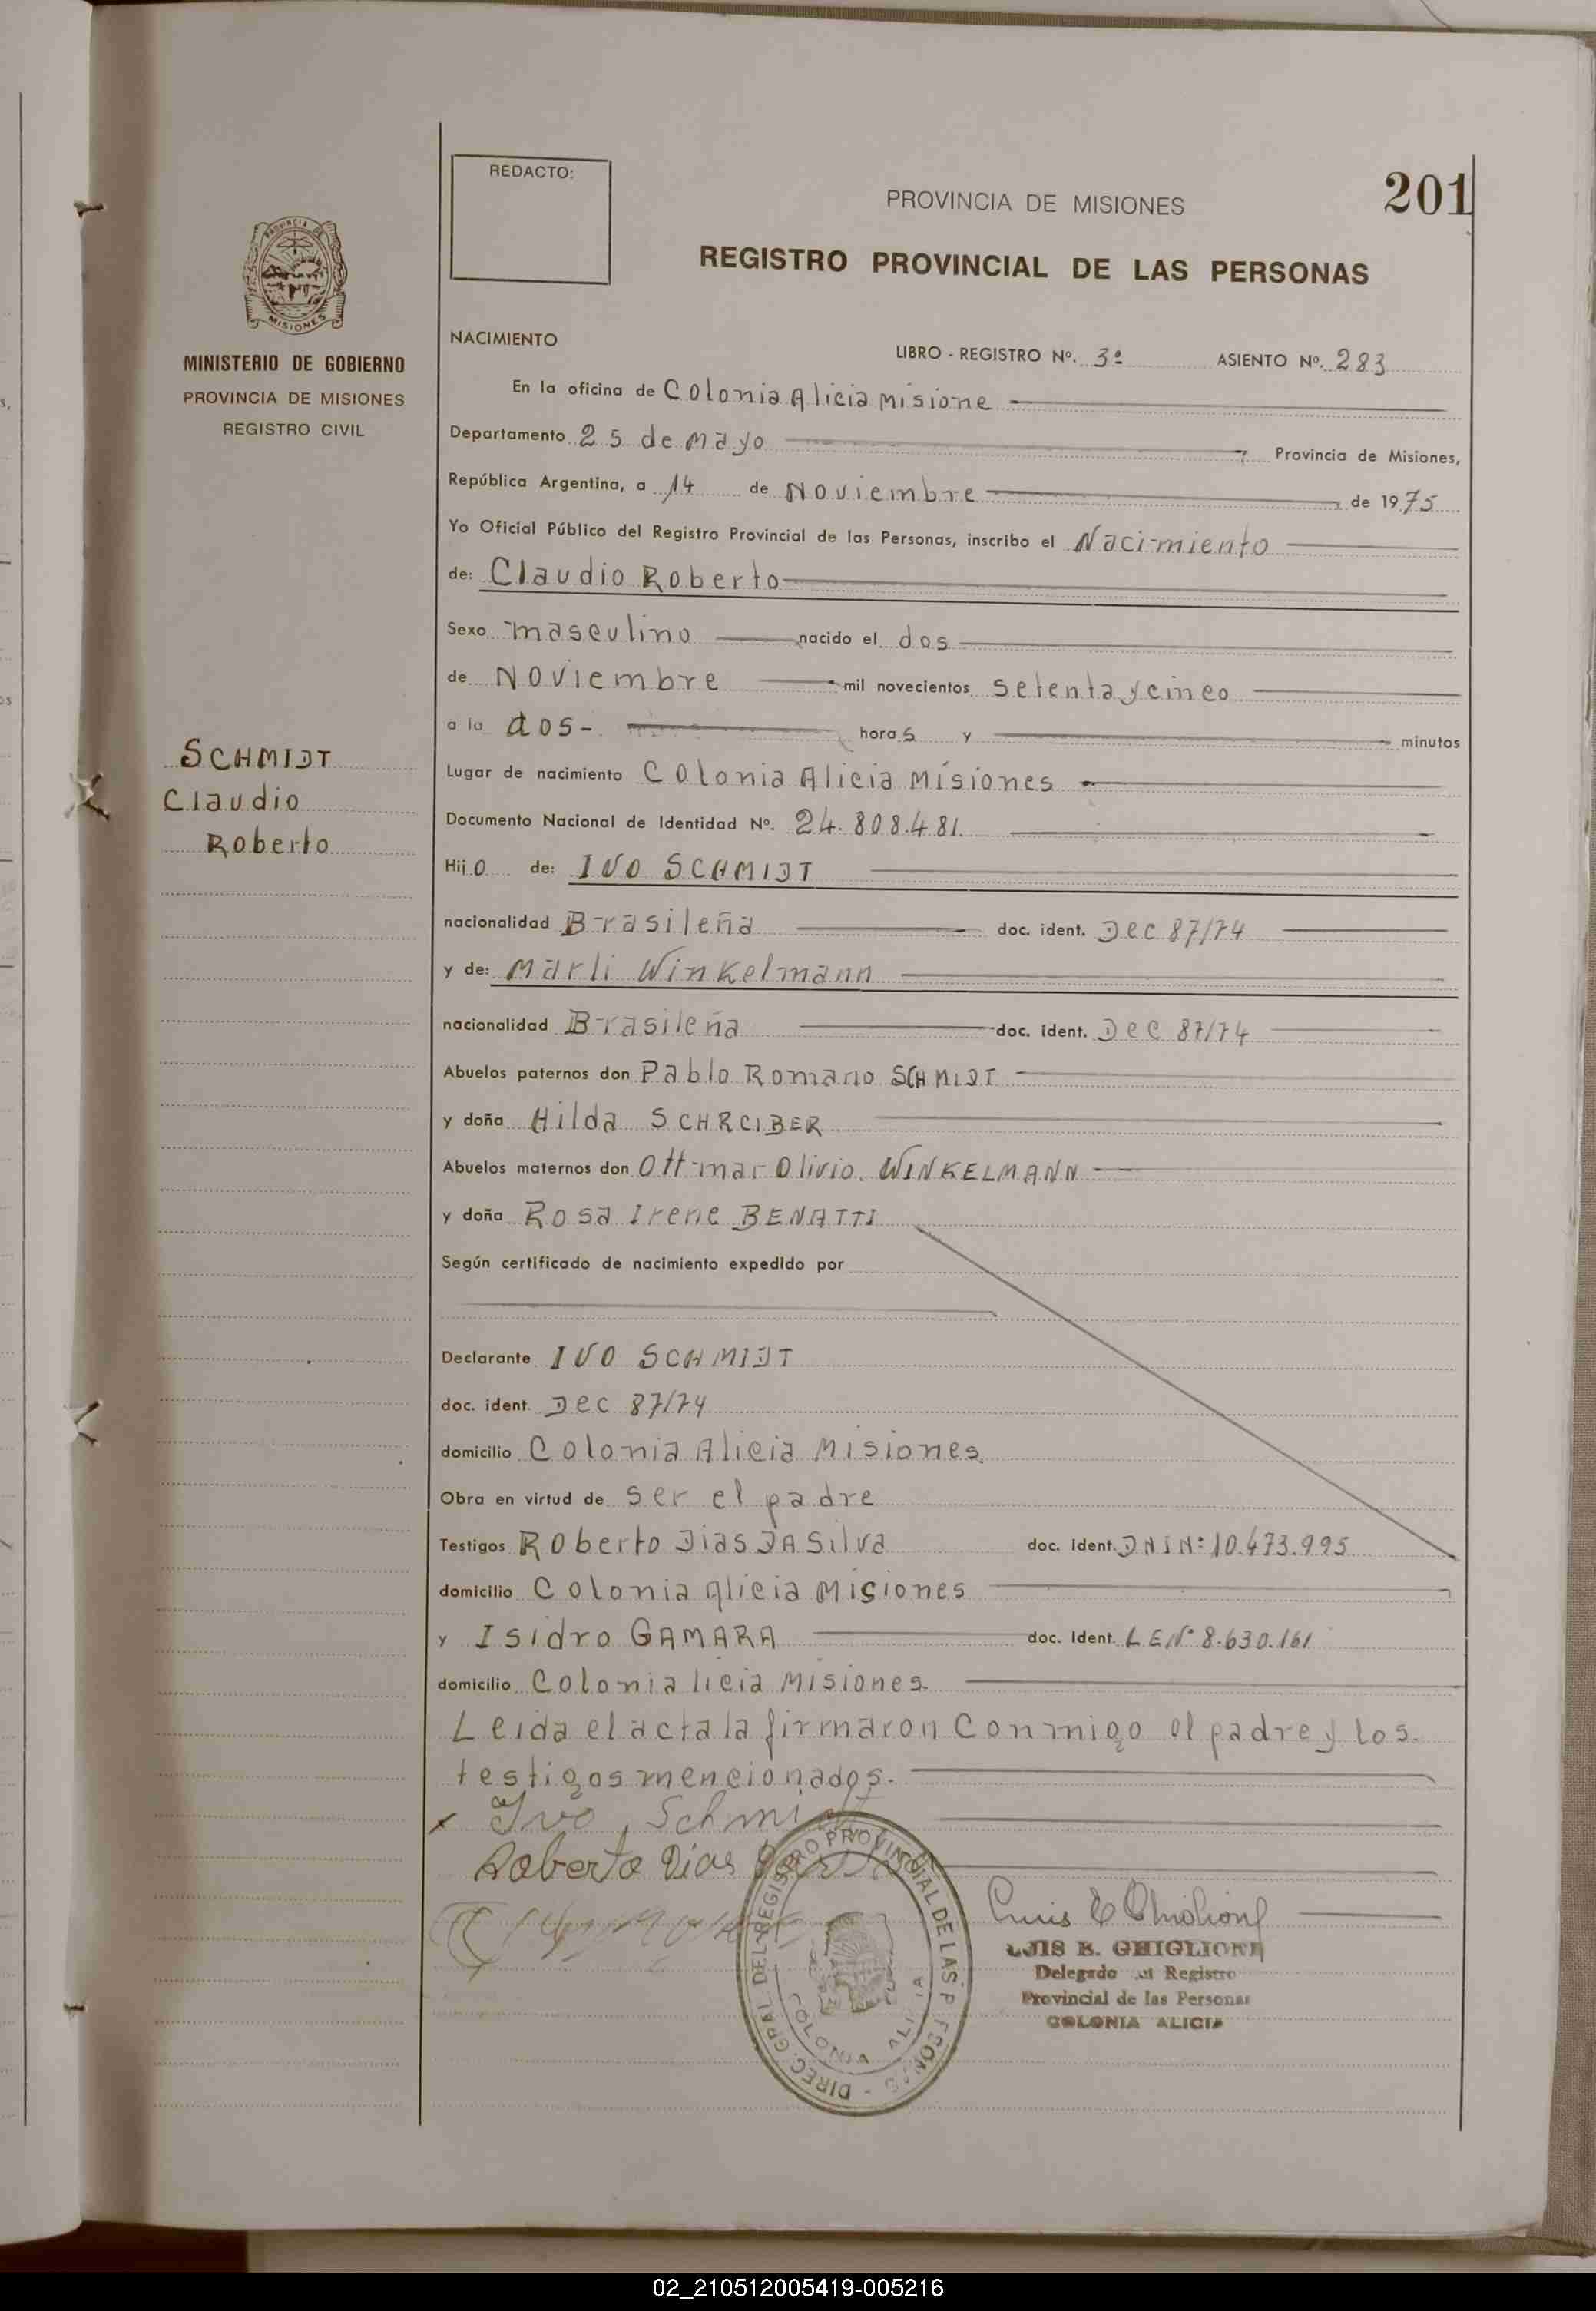 REDACTO:
201
PROVINCIA DE MISIONES
REGISTRO PROVINCIAL DE LAS PERSONAS
PROVINCIA DE
MISIONES
MINISTERIO DE GOBIERNO
PROVINCIA DE MISIONES
REGISTRO CIVIL
SCHMIDT
Claudio
Roberto
NACIMIENTO
LIBRO - REGISTRO Nº. 3º ASIENTO Nº. 283
En la oficina de Colonia Alicia Misione
Departamento 25 de Mayo, Provincia de Misiones,
República Argentina, a 14 de Noviembre, de 1975
Yo Oficial Público del Registro Provincial de las Personas, inscribo el Nacimiento
de: Claudio Roberto
Sexo masculino nacido el dos
de Noviembre mil novecientos setenta y cinco
a la dos- horas y minutos
Lugar de nacimiento Colonia Alicia Misiones
Documento Nacional de Identidad Nº. 24.808.481.
Hijo de: IVO SCHMIDT
nacionalidad Brasileña doc. ident. Dec 87/74
y de: Marli Winkelmann
nacionalidad Brasileña doc. ident. Dec 87/74
Abuelos paternos don Pablo Romano SCHMIDT
y doña Hilda SCHRCIBER
Abuelos maternos don Ottmar Olivio. WINKELMANN
y doña Rosa Irene BENATTI
Según certificado de nacimiento expedido por
Declarante IVO SCHMIDT
doc. ident. Dec 87/74
domicilio Colonia Alicia Misiones.
Obra en virtud de ser el padre
Testigos Roberto Dias DA Silva doc. Ident. DNI Nº 10.473.995
domicilio Colonia Alicia Misiones
y Isidro GAMARA doc. Ident. LE Nº 8.630.161
domicilio Colonia licia Misiones
Leida el acta la firmaron conmigo el padre y los.
testigos mencionados.
x Ivo Schmidt
Roberto Dias
DIREC. GRAL. DEL REGISTRO PROVINCIAL DE LAS PERSONAS
COLONIA ALICIA
LUIS E. GHIGLIONE
Delegado del Registro
Provincial de las Personas
COLONIA ALICIA
02_210512005419-005216